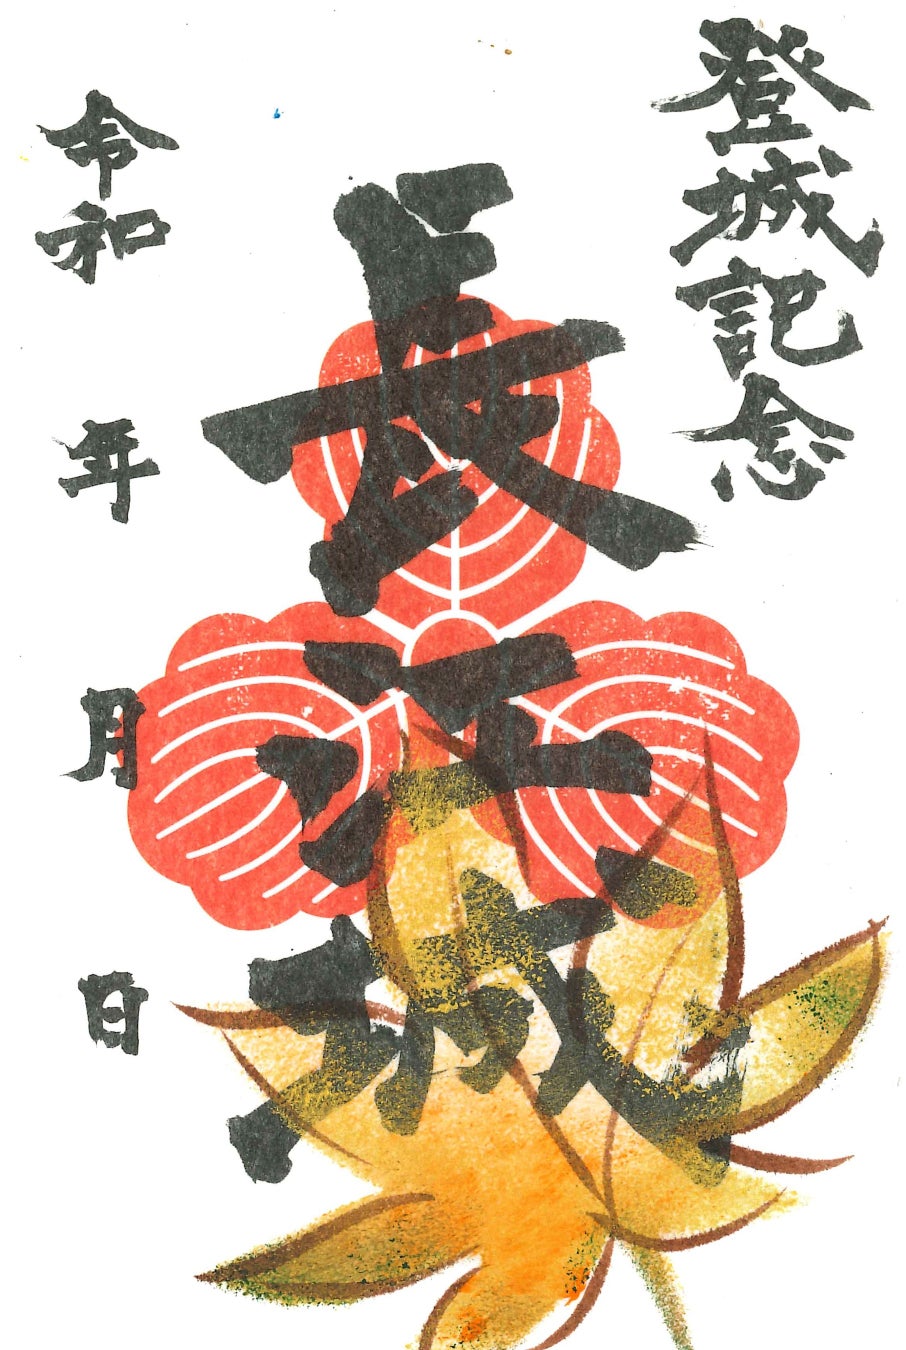 登城記念
長江城
令和 年 月 日